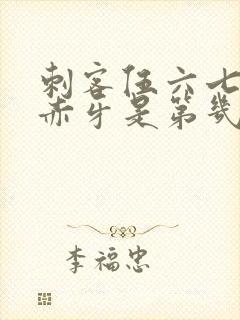 刺客伍六七
赤牙是第几
李福忠